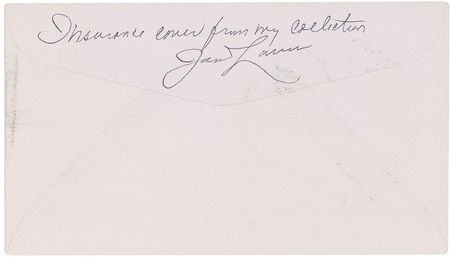 Insurance cover from my collection